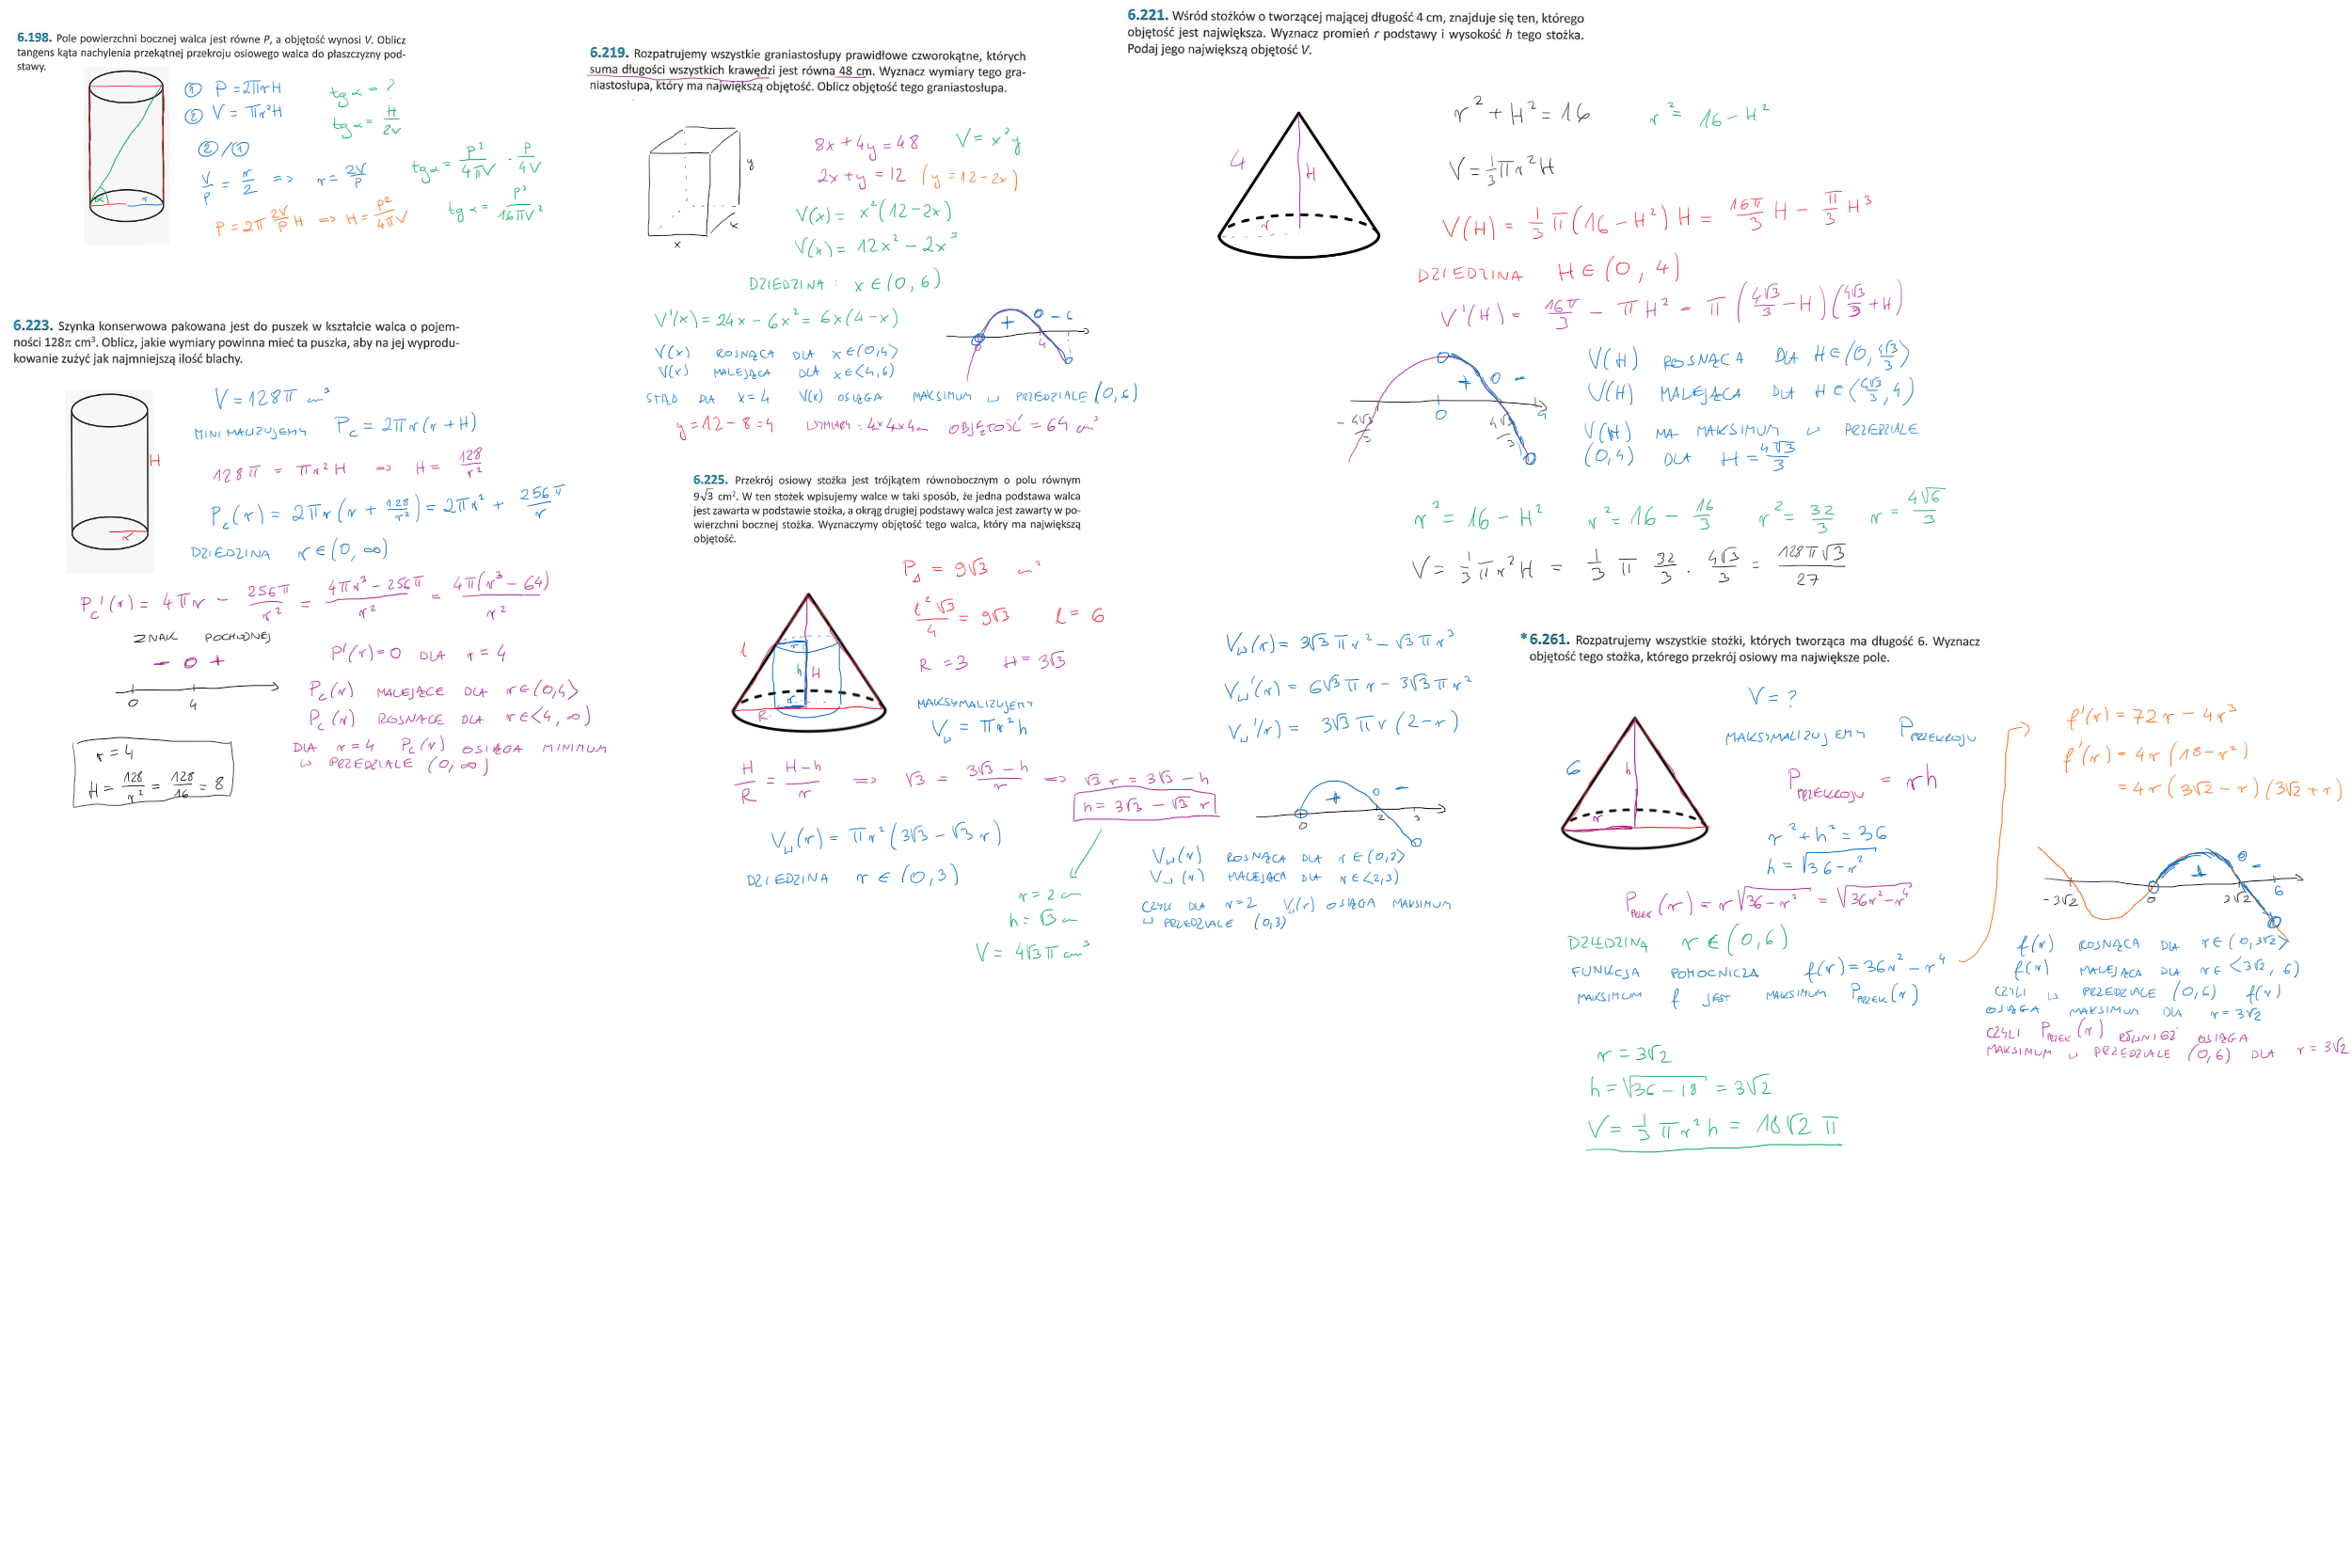 6.198. Pole powierzchni bocznej walca jest równe P, a objętość wynosi V. Oblicz
tangens kąta nachylenia przekątnej przekroju osiowego walca do płaszczyzny pod-
stawy.
① P = 2πrH
② V = πr²H
tg α = ?
tg α = H/2r
②/①
V/P = r/2 => r = 2V/P
P = 2π 2V/P H => H = P²/4πV
tg α = P²/4πV · P/4V
tg α = P³/16πV²
α
r
6.219. Rozpatrujemy wszystkie graniastosłupy prawidłowe czworokątne, których
suma długości wszystkich krawędzi jest równa 48 cm. Wyznacz wymiary tego gra-
niastosłupa, który ma największą objętość. Oblicz objętość tego graniastosłupa.
y
x
x
8x + 4y = 48 V = x²y
2x + y = 12 (y = 12 - 2x)
V(x) = x²(12 - 2x)
V(x) = 12x² - 2x³
DZIEDZINA : x ∈ (0, 6)
V'(x) = 24x - 6x² = 6x(4 - x)
+ 0 - 6
0 4
V(x) ROSNĄCA DLA x ∈ (0,4>
V(x) MALEJĄCA DLA x ∈ <4,6)
STĄD DLA x = 4 V(x) OSIĄGA MAKSIMUM W PRZEDZIALE (0,6)
y = 12 - 8 = 4 WYMIARY : 4x4x4 cm OBJĘTOŚĆ = 64 cm³
6.221. Wśród stożków o tworzącej mającej długość 4 cm, znajduje się ten, którego
objętość jest największa. Wyznacz promień r podstawy i wysokość h tego stożka.
Podaj jego największą objętość V.
4
H
r
r² + H² = 16 r² = 16 - H²
V = 1/3 πr²H
V(H) = 1/3 π(16 - H²) H = 16π/3 H - π/3 H³
DZIEDZINA H ∈ (0, 4)
V'(H) = 16π/3 - πH² = π (4√3/3 - H)(4√3/3 + H)
+ 0 -
-4√3/3 0 4√3/3 4
V(H) ROSNĄCA DLA H ∈ (0, 4√3/3>
V(H) MALEJĄCA DLA H ∈ <4√3/3, 4)
V(H) MA MAKSIMUM W PRZEDZIALE
(0,4) DLA H = 4√3/3
r² = 16 - H² r² = 16 - 16/3 r² = 32/3 r = 4√6/3
V = 1/3 πr²H = 1/3 π 32/3 · 4√3/3 = 128π√3/27
6.223. Szynka konserwowa pakowana jest do puszek w kształcie walca o pojem-
ności 128π cm³. Oblicz, jakie wymiary powinna mieć ta puszka, aby na jej wyprodu-
kowanie zużyć jak najmniejszą ilość blachy.
H
r
V = 128π cm³
MINIMALIZUJEMY Pc = 2πr(r + H)
128π = πr²H => H = 128/r²
Pc(r) = 2πr(r + 128/r²) = 2πr² + 256π/r
DZIEDZINA r ∈ (0, ∞)
Pc'(r) = 4πr - 256π/r² = 4πr³ - 256π/r² = 4π(r³ - 64)/r²
ZNAK POCHODNEJ
- 0 +
0 4
P'(r) = 0 DLA r = 4
Pc(r) MALEJĄCE DLA r ∈ (0,4>
Pc(r) ROSNĄCE DLA r ∈ <4, ∞)
DLA r = 4 Pc(r) OSIĄGA MINIMUM
W PRZEDZIALE (0, ∞)
r = 4
H = 128/r² = 128/16 = 8
6.225. Przekrój osiowy stożka jest trójkątem równobocznym o polu równym
9√3 cm². W ten stożek wpisujemy walce w taki sposób, że jedna podstawa walca
jest zawarta w podstawie stożka, a okrąg drugiej podstawy walca jest zawarty w po-
wierzchni bocznej stożka. Wyznaczymy objętość tego walca, który ma największą
objętość.
l
r
h
H
r
R
PΔ = 9√3 cm²
l²√3/4 = 9√3 l = 6
R = 3 H = 3√3
MAKSYMALIZUJEMY
Vw = πr²h
H/R = H-h/r => √3 = 3√3 - h/r => √3 r = 3√3 - h
h = 3√3 - √3 r
Vw(r) = πr²(3√3 - √3 r)
DZIEDZINA r ∈ (0,3)
r = 2 cm
h = √3 cm
V = 4√3π cm³
Vw(r) = 3√3 πr² - √3 πr³
Vw'(r) = 6√3 πr - 3√3 πr²
Vw'(r) = 3√3 πr (2 - r)
+ 0 -
0 2 3
Vw(r) ROSNĄCA DLA r ∈ (0,2>
Vw(r) MALEJĄCA DLA r ∈ <2,3)
CZYLI DLA r = 2 Vw(r) OSIĄGA MAKSIMUM
W PRZEDZIALE (0,3)
*6.261. Rozpatrujemy wszystkie stożki, których tworząca ma długość 6. Wyznacz
objętość tego stożka, którego przekrój osiowy ma największe pole.
6
h
r
V = ?
MAKSYMALIZUJEMY PPRZEKROJU
PPRZEKROJU = rh
r² + h² = 36
h = √36 - r²
PPRZEK(r) = r√36 - r² = √36r² - r⁴
DZIEDZINA r ∈ (0,6)
FUNKCJA POMOCNICZA f(r) = 36r² - r⁴
MAKSIMUM f JEST MAKSIMUM PPRZEK(r)
r = 3√2
h = √36 - 18 = 3√2
V = 1/3 πr²h = 18√2 π
f'(r) = 72r - 4r³
f'(r) = 4r (18 - r²)
= 4r (3√2 - r)(3√2 + r)
+ 0 -
-3√2 0 3√2 6
f(r) ROSNĄCA DLA r ∈ (0, 3√2>
f(r) MALEJĄCA DLA r ∈ <3√2, 6)
CZYLI W PRZEDZIALE (0,6) f(r)
OSIĄGA MAKSIMUM DLA r = 3√2
CZYLI PPRZEK(r) RÓWNIEŻ OSIĄGA
MAKSIMUM W PRZEDZIALE (0,6) DLA r = 3√2